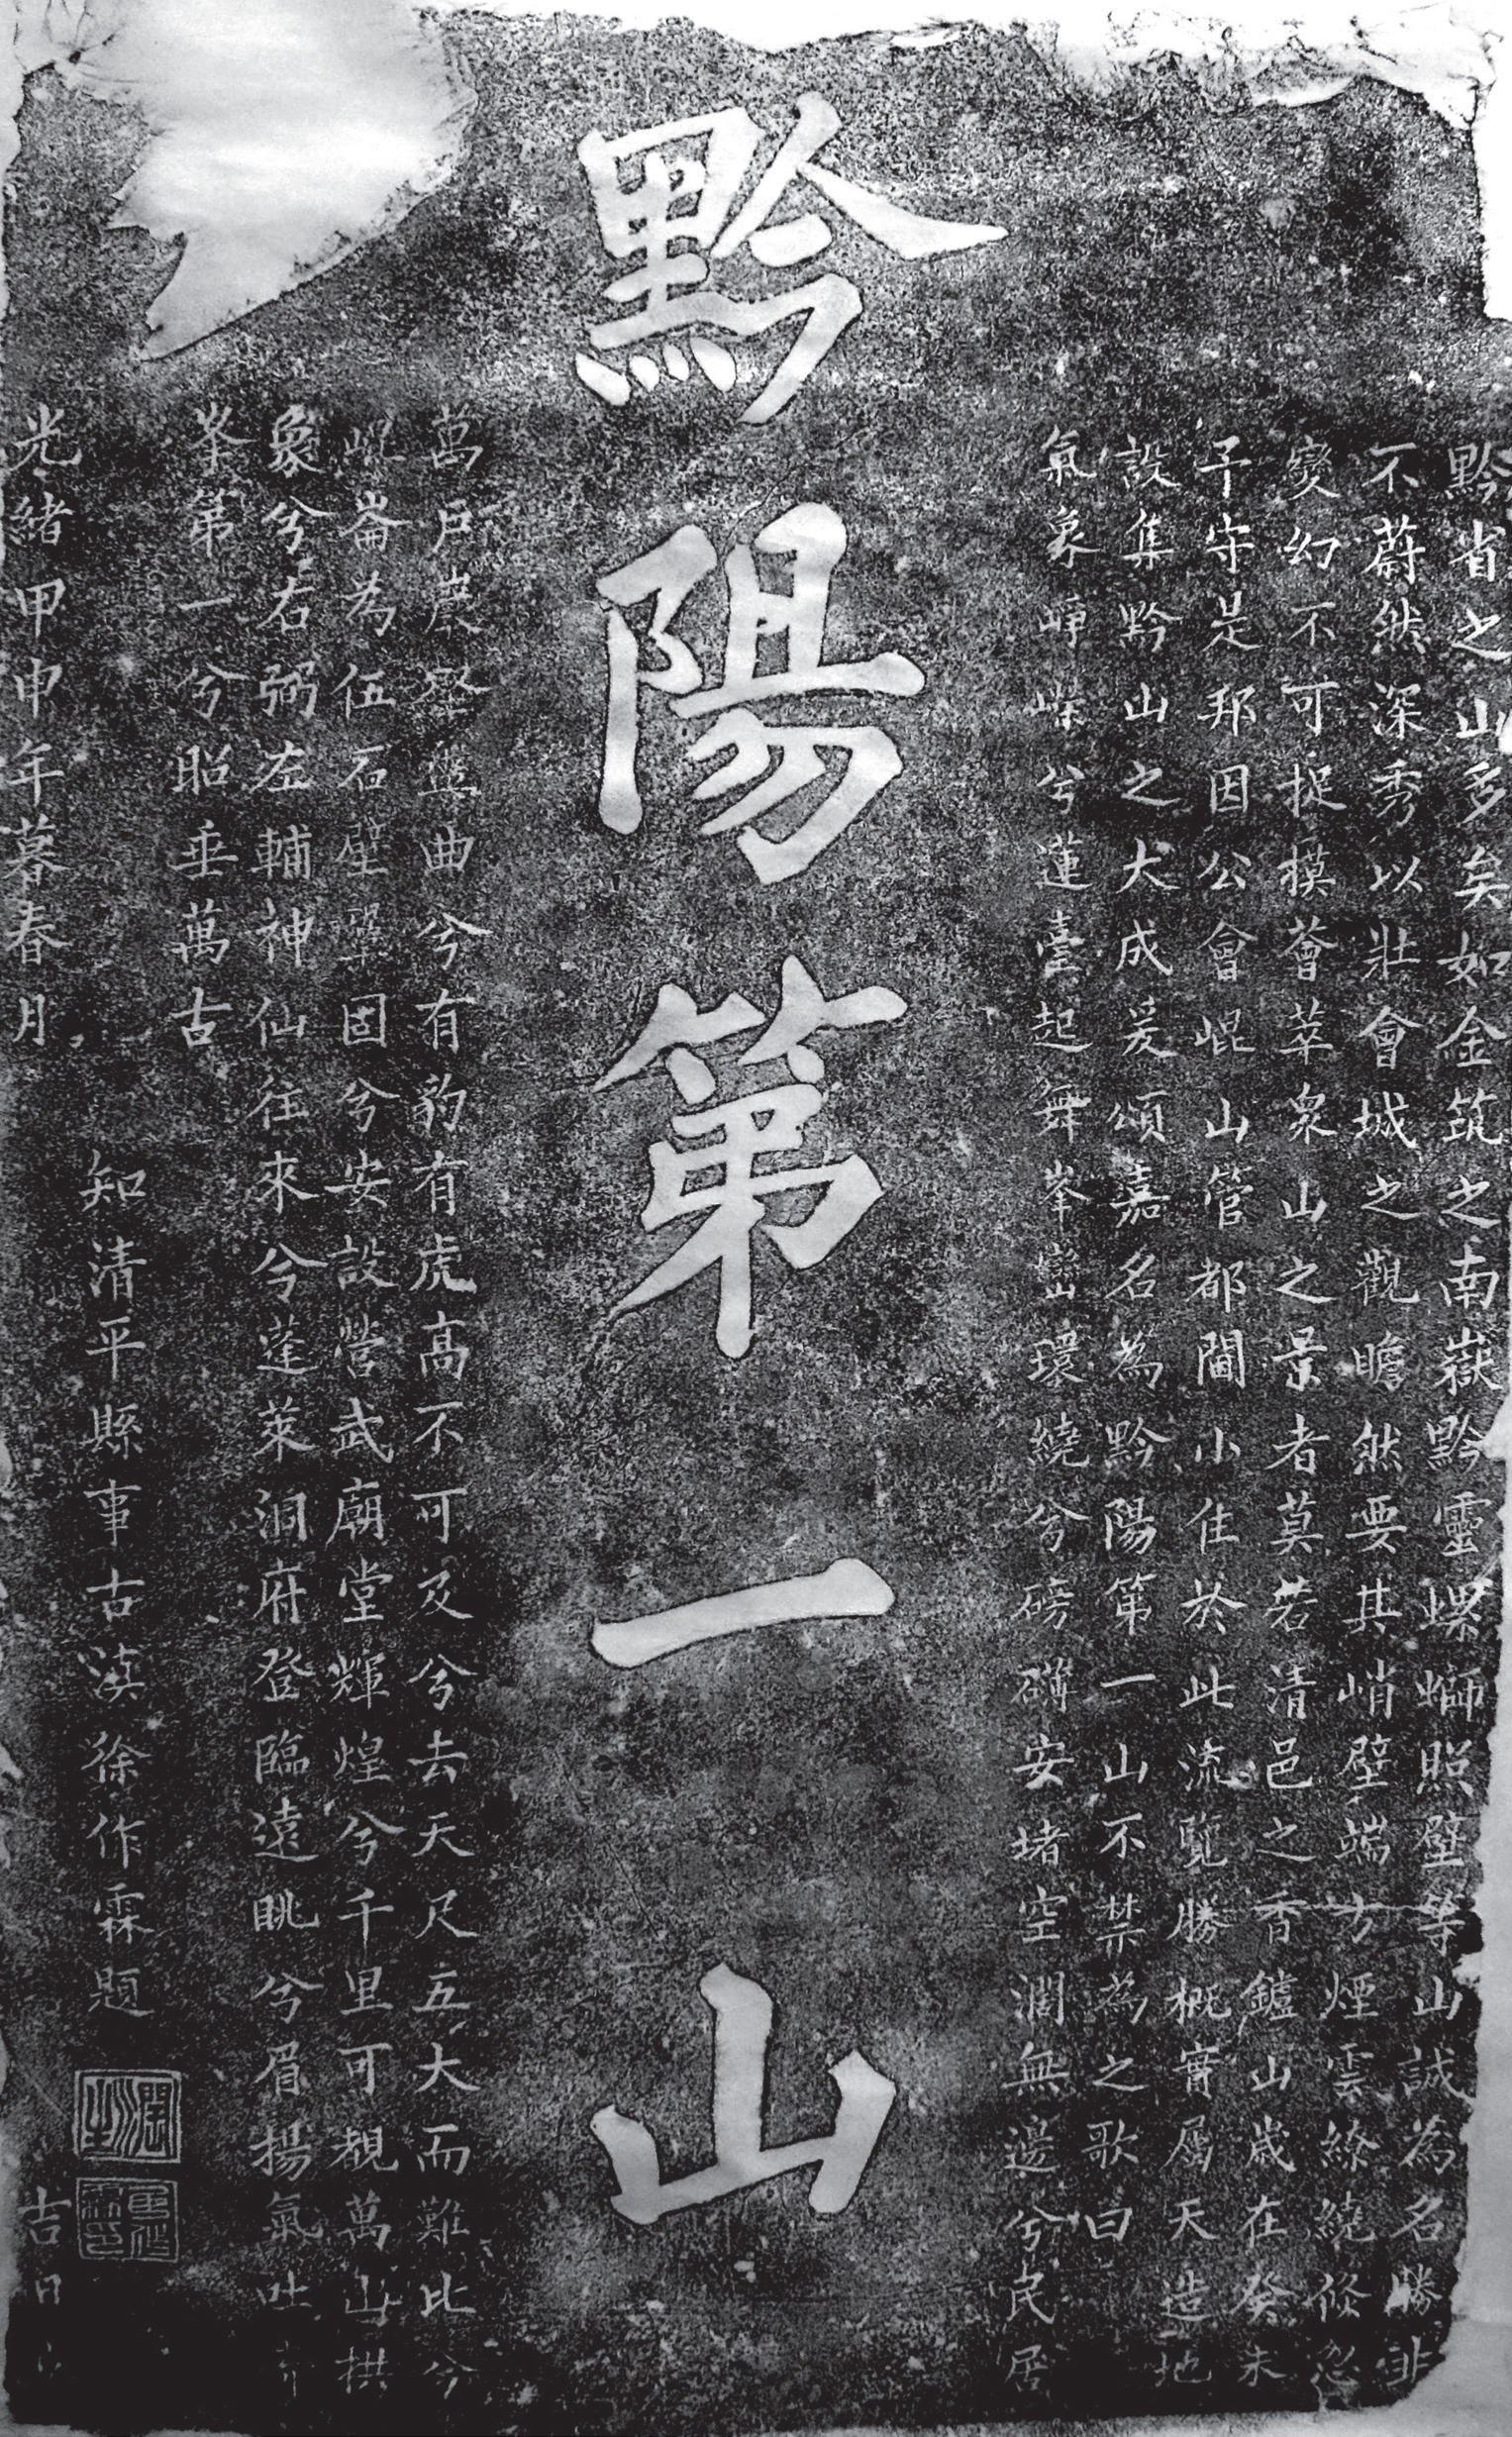 黔省之山多矣如金筑之南嶽黔靈螺螄照壁等山誠為名勝非
不蔚然深秀以壯會城之觀瞻然要其峭壁端方煙雲繚繞倏忽
變幻不可捉摸薈萃眾山之景者莫若清邑之香鑪山歲在癸未
予守是邦因公會崐山管都閫小住於此流覽勝概實屬天造地
設集黔山之大成爰頌嘉名為黔陽第一山不禁為之歌曰
氣象崢嶸兮蓮臺起舞峯巒環繞兮磅礴安堵空濶無邊兮民居
黔陽第一山
萬戶 曲兮有豹有虎高不可及兮去天尺五大而難比兮
崐崙為伍石壁鞏固兮安設營武廟堂輝煌兮千里可覩萬山拱
象兮右弼左輔神仙往來兮蓬萊洞府登臨遠眺兮眉揚氣吐
峯第一兮昭垂萬古
知清平縣事古滇徐作霖題
光緒甲申年暮春月 吉日